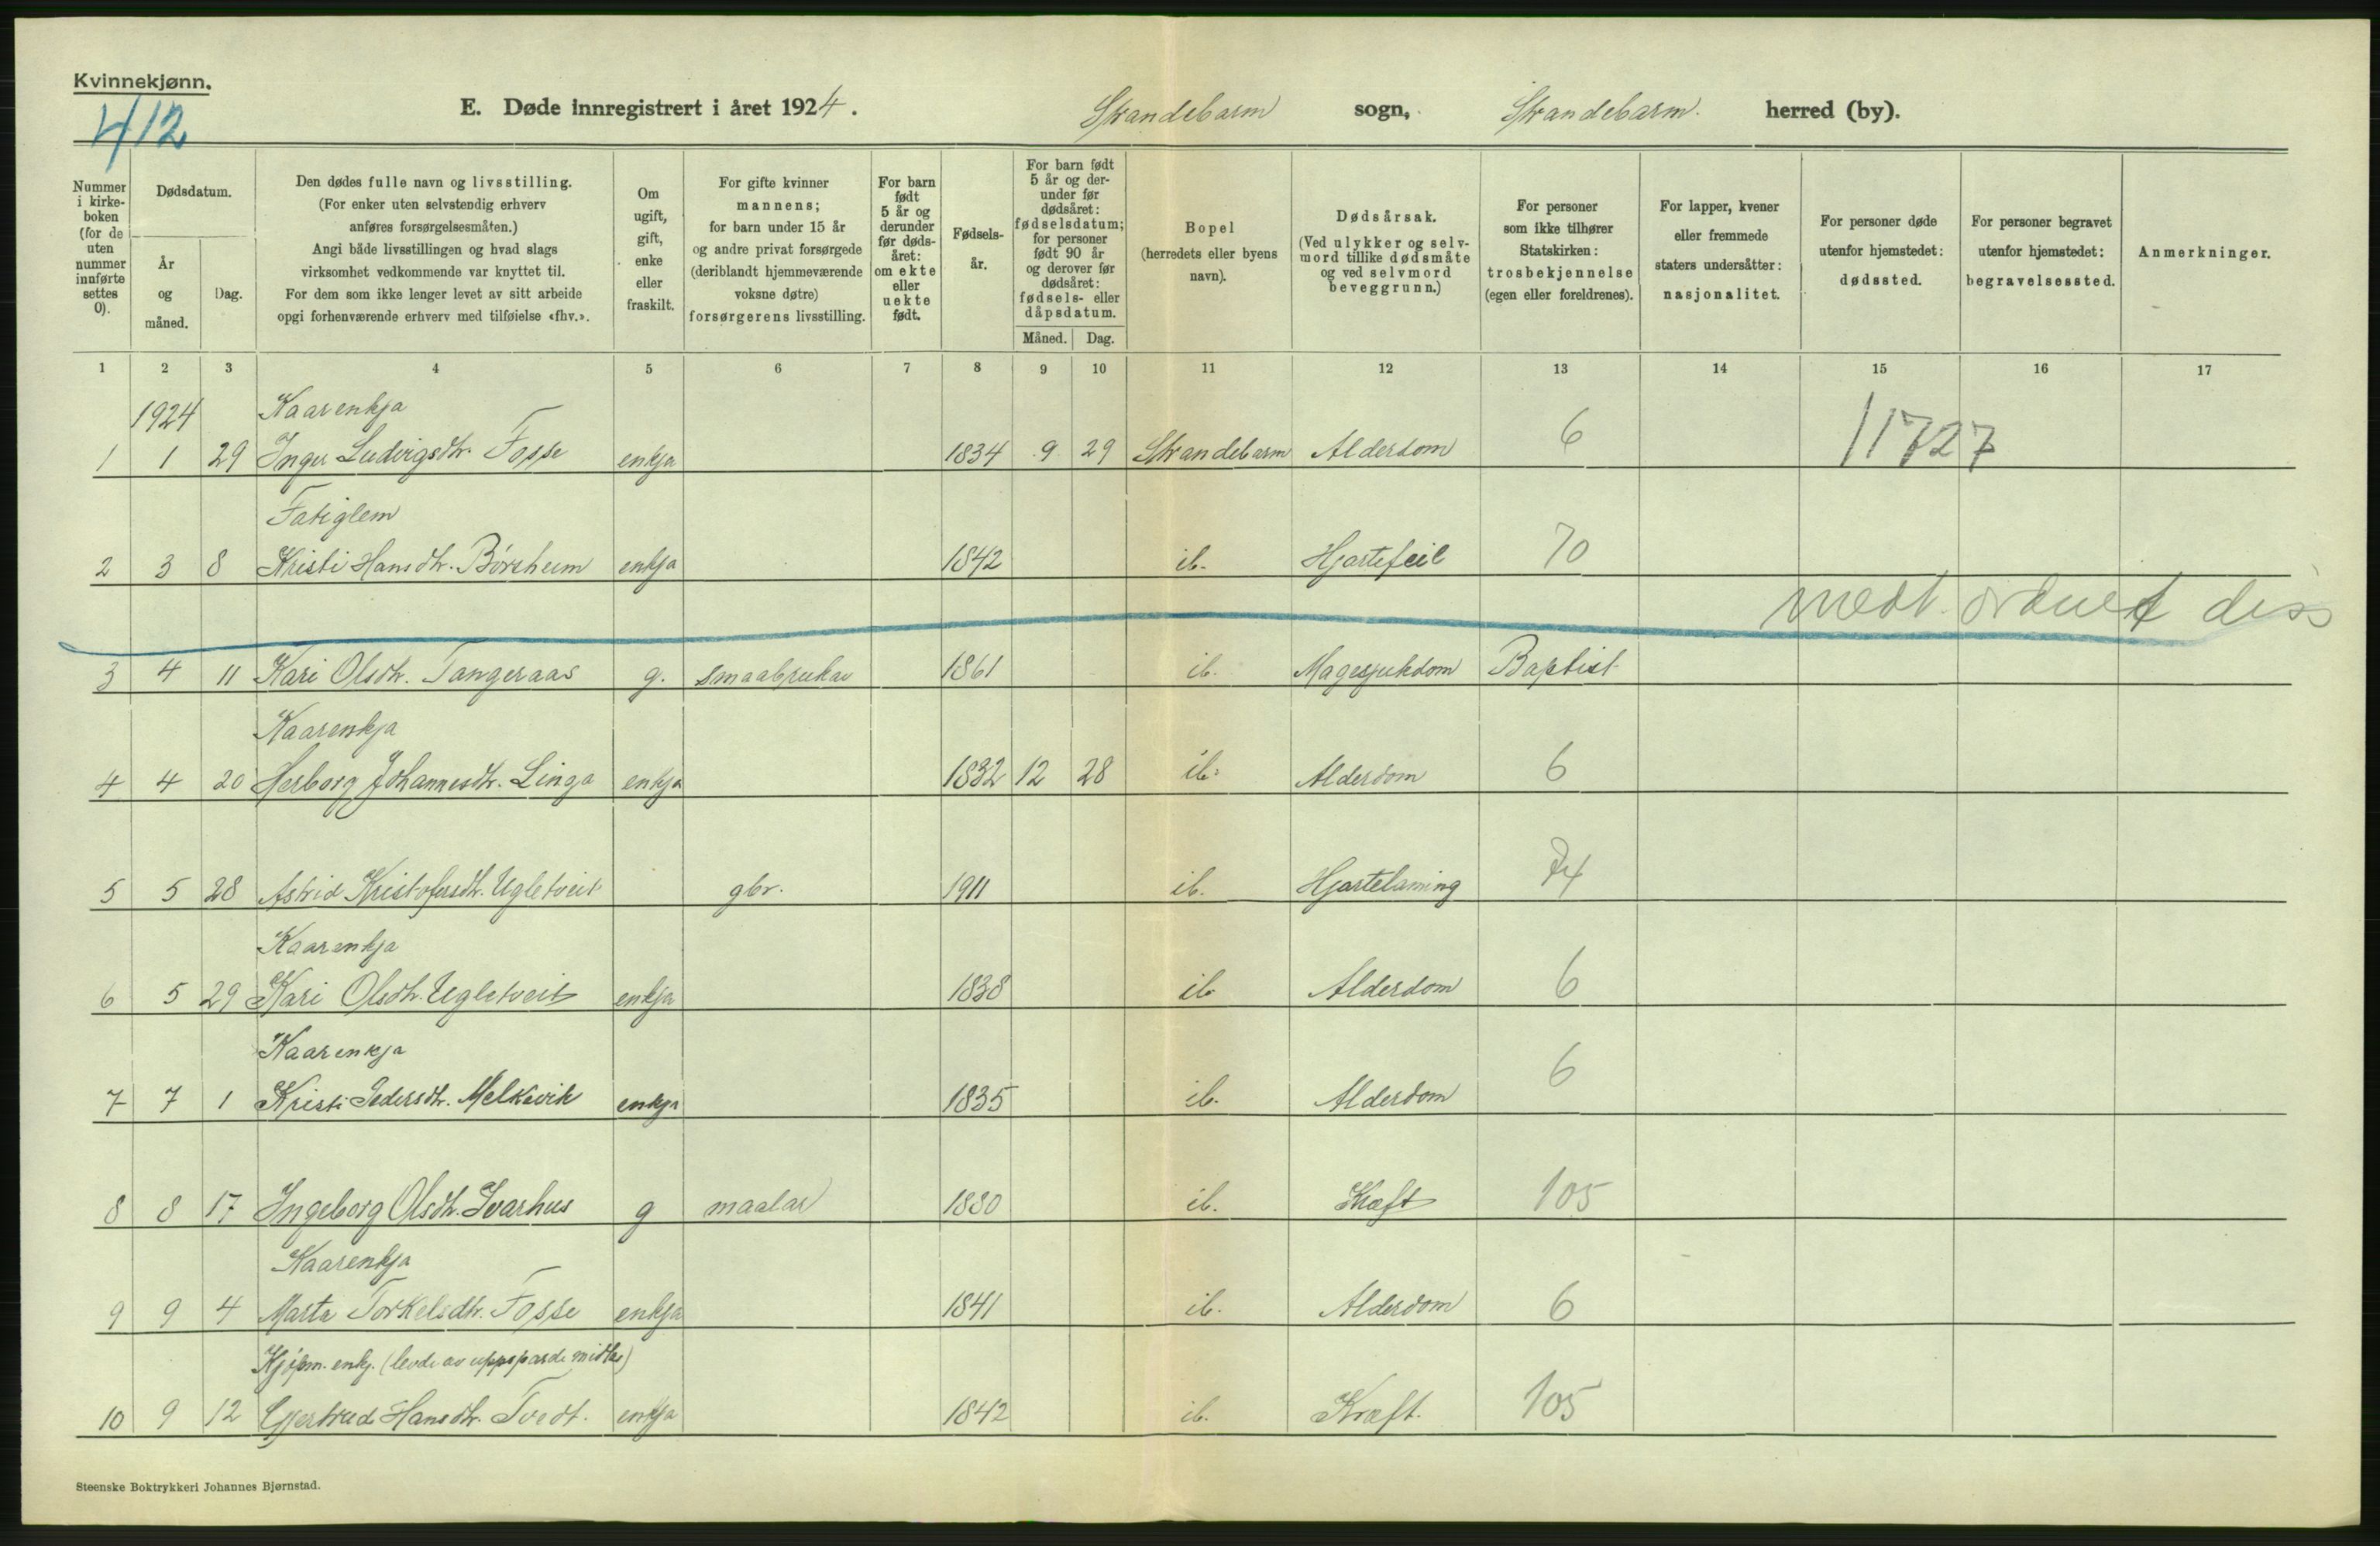 Kvinnekjønn.
412
E. Døde innregistrert i året 1924.
Strandebarm sogn, Strandebarm. herred (by).
Nummer i kirke-boken (for de uten nummer innførte settes 0).
Dødsdatum.
År og måned.
Dag.
Den dødes fulle navn og livsstilling.
(For enker uten selvstendig erhverv
anføres forsørgelsesmåten.)
Angi både livsstillingen og hvad slags
virksomhet vedkommende var knyttet til.
For dem som ikke lenger levet av sitt arbeide
opgi forhenværende erhverv med tilføielse «fhv.».
Om ugift, gift, enke eller fraskilt.
For gifte kvinner
mannens;
for barn under 15 år
og andre privat forsørgede
(deriblandt hjemmeværende
voksne døtre)
forsørgerens livsstilling.
For barn født 5 år og derunder før døds-året: om ekte eller uekte født.
Fødsels-år.
For barn født 5 år og der-under før dødsåret: fødselsdatum; for personer født 90 år og derover før dødsåret: fødsels- eller dåpsdatum.
Måned. Dag.
Bopel
(herredets eller byens
navn).
Dødsårsak.
(Ved ulykker og selv-
mord tillike dødsmåte
og ved selvmord
beveggrunn.)
For personer
som ikke tilhører
Statskirken:
trosbekjennelse
(egen eller foreldrenes).
For lapper, kvener
eller fremmede
staters undersåtter:
nasjonalitet.
For personer døde
utenfor hjemstedet:
dødssted.
For personer begravet
utenfor hjemstedet:
begravelsessted.
Anmerkninger.
1 2 3 4 5 6 7 8 9 10 11 12 13 14 15 16 17
1924 Kaarenkja
1 1 29 Inger Ludvigsdtr. Fosse enkja 1834 9 29 Strandebarm Alderdom 6 11727
Fatiglem
2 3 8 Kristi Hansdtr. Børsheim enkja 1842 ib. Hjartefeil 70
medt. ordnet diss
3 4 11 Kari Olsdtr. Tangeraas g. smaabrukar 1861 ib. Magesjukdom Baptist
Kaarenkja
4 4 20 Herborg Johannesdtr. Linga enkja 1832 12 28 ib. Alderdom 6
5 5 28 Astrid Kristofersdtr. Ugletveit gbr. 1911 ib. Hjartelaming
Kaarenkja
6 5 29 Kari Olsdtr. Ugletveit enkja 1838 ib Alderdom 6
Kaarenkja
7 7 1 Kristi Pedersdtr. Melkevik enkja 1835 ib. Alderdom 6
8 8 17 Ingeborg Olsdtr. Ivarhus g maalar 1880 ib. Kræft 105
Kaarenkja
9 9 4 Marta Torkelsdtr. Fosse enkja 1841 ib. Alderdom 6
Kjøpm. enkj. (levde av uppsparde midlar)
10 9 12 Gjertrud Hansdtr. Tvedt. enkja 1842 ib. Kræft. 105
Steenske Boktrykkeri Johannes Bjørnstad.